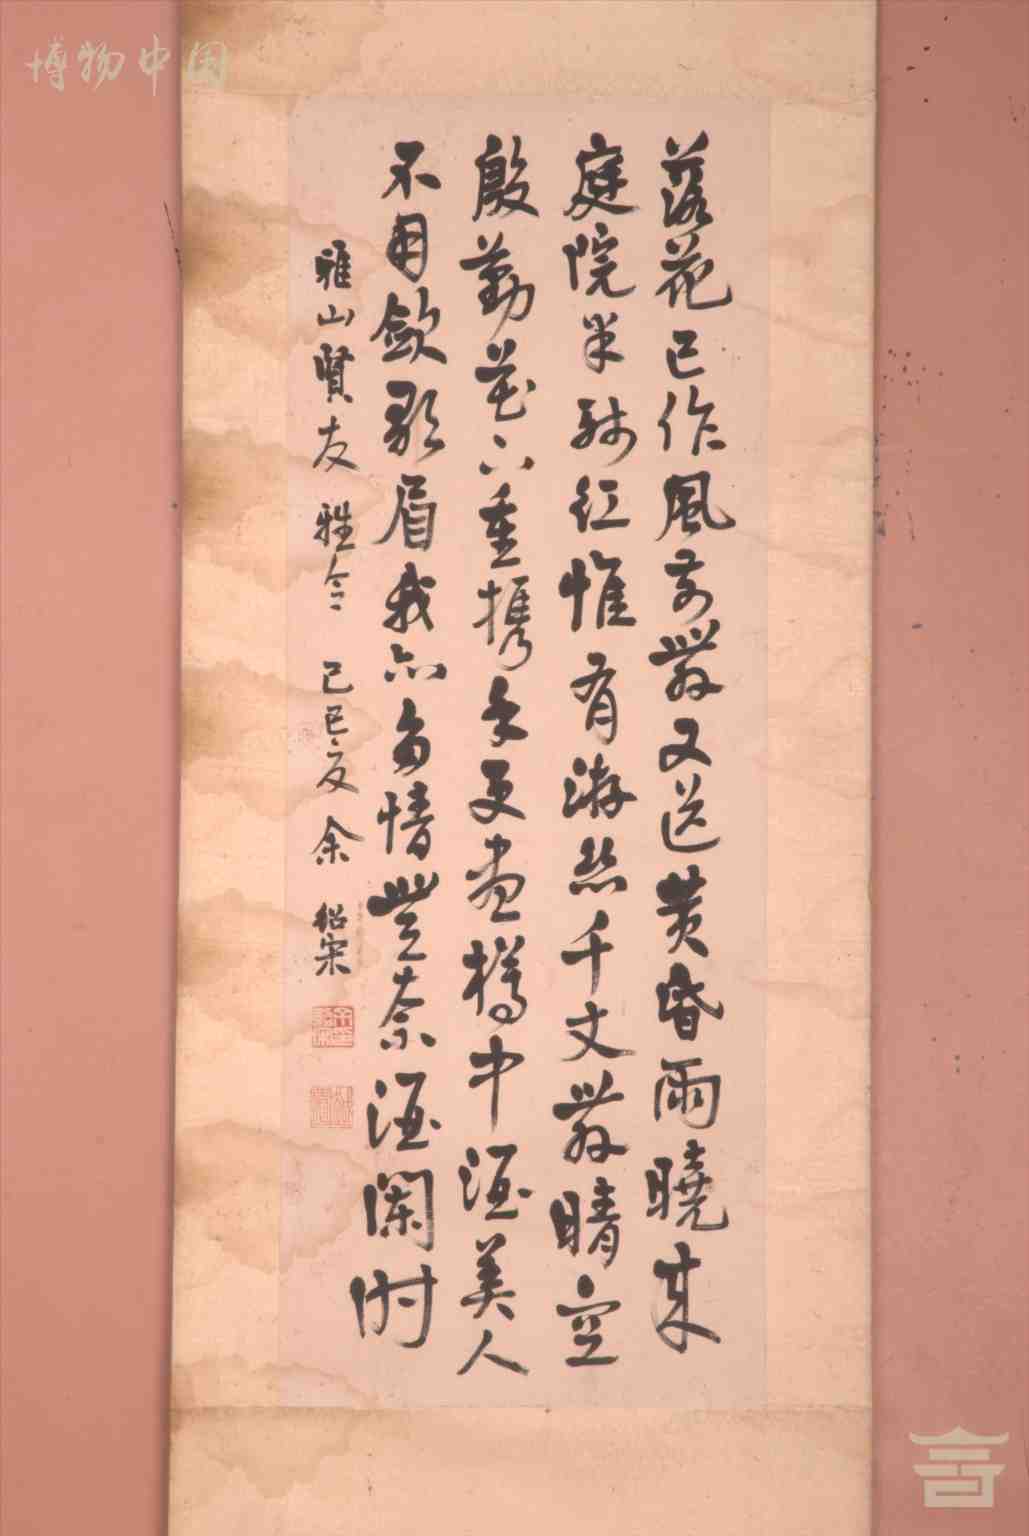 博物中国
落花已作風前舞又送黄昏雨曉來
庭院半殘紅惟有游絲千丈舞晴空
殷勤花下重携手更盡樽中酒美人
不用斂歌眉我亦多情無奈酒闌時
雅山賢友 雅 己巳夏 余紹宋